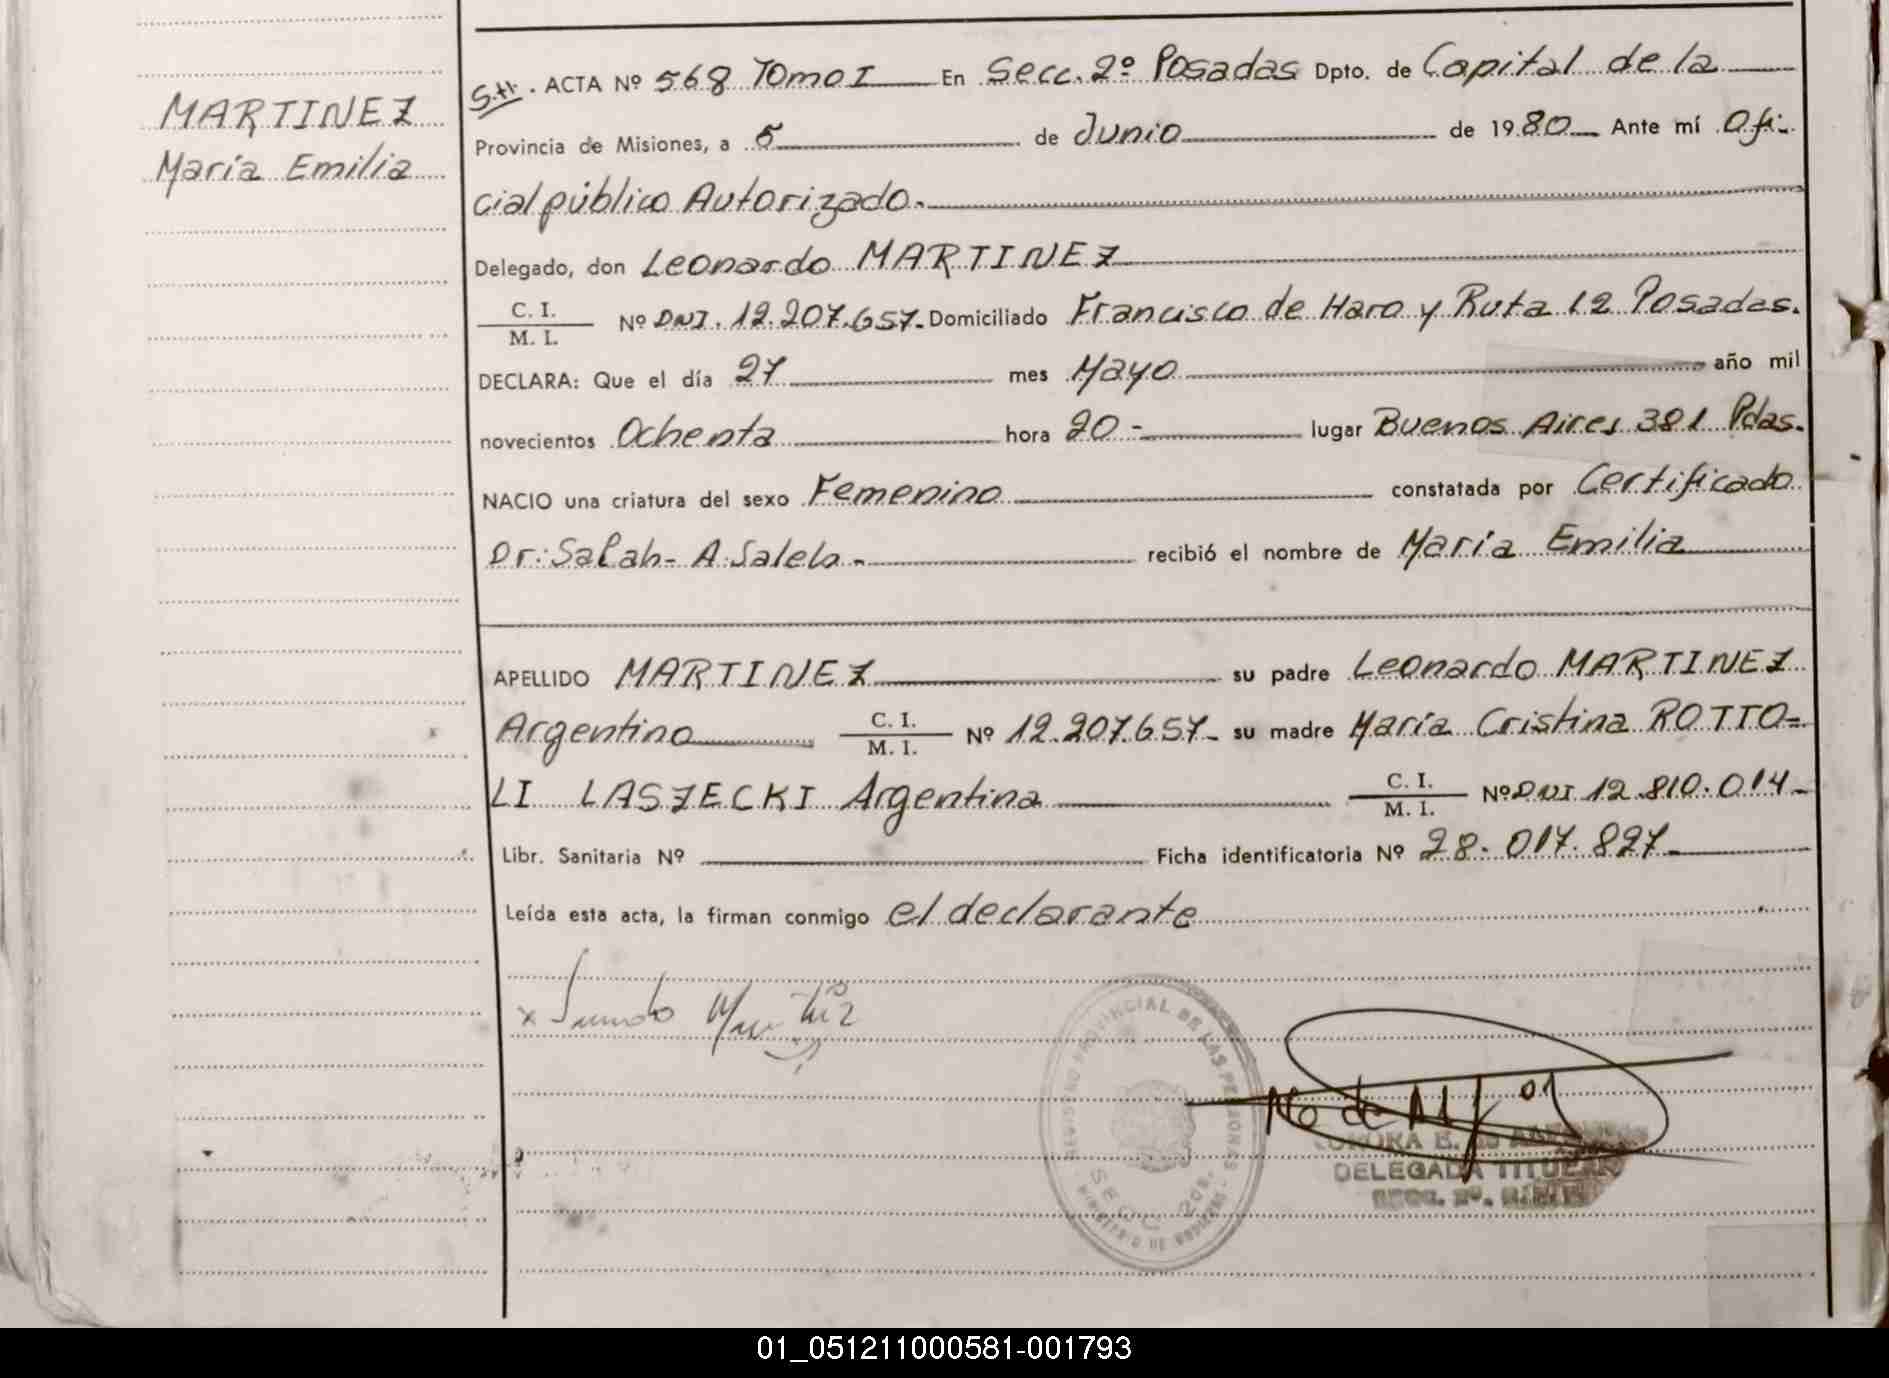 MARTINEZ
María Emilia
S.H. ACTA Nº 568 Tomo I En Secc. 2º Posadas Dpto. de Capital de la
Provincia de Misiones, a 5 de Junio de 1980 Ante mí Ofi-
cial público Autorizado.-
Delegado, don Leonardo MARTINEZ
C. I. / M. I. Nº DNI. 12.207.657- Domiciliado Francisco de Haro y Ruta 12 Posadas.
DECLARA: Que el día 27 mes Mayo año mil
novecientos Ochenta hora 20- lugar Buenos Aires 381 Pdas.
NACIO una criatura del sexo Femenino constatada por Certificado
Dr: Salah- A. Saleh.- recibió el nombre de María Emilia
APELLIDO MARTINEZ su padre Leonardo MARTINEZ
Argentino C. I. / M. I. Nº 12.207.657- su madre María Cristina ROTTO=
LI LASZECKI Argentina C. I. / M. I. Nº DNI 12.810.014-
Libr. Sanitaria Nº Ficha identificatoria Nº 28.017.827-
Leída esta acta, la firman conmigo el declarante
REGISTRO PROVINCIAL DE LAS PERSONAS
SECC. 2da.
MINISTERIO DE GOBIERNO
DELEGADA TITULAR
01_051211000581-001793